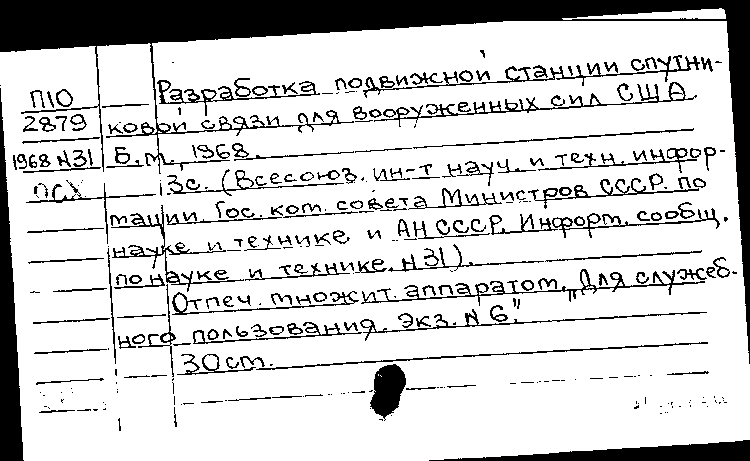 Разработка подвижной станции спутни-
П10
2879 ковой связи для вооруженных сил США.
1968 N31 Б.м., 1968.
ОСХ 3с. (Всесоюз. ин-т науч. и техн. инфор-
мации. Гос. ком. совета Министров СССР по
науке и технике и АН СССР. Информ. сообщ.
по науке и технике. N31).
Отпеч. множит. аппаратом. „Для служеб-
ного пользования. Экз. N 6."
30 cm.